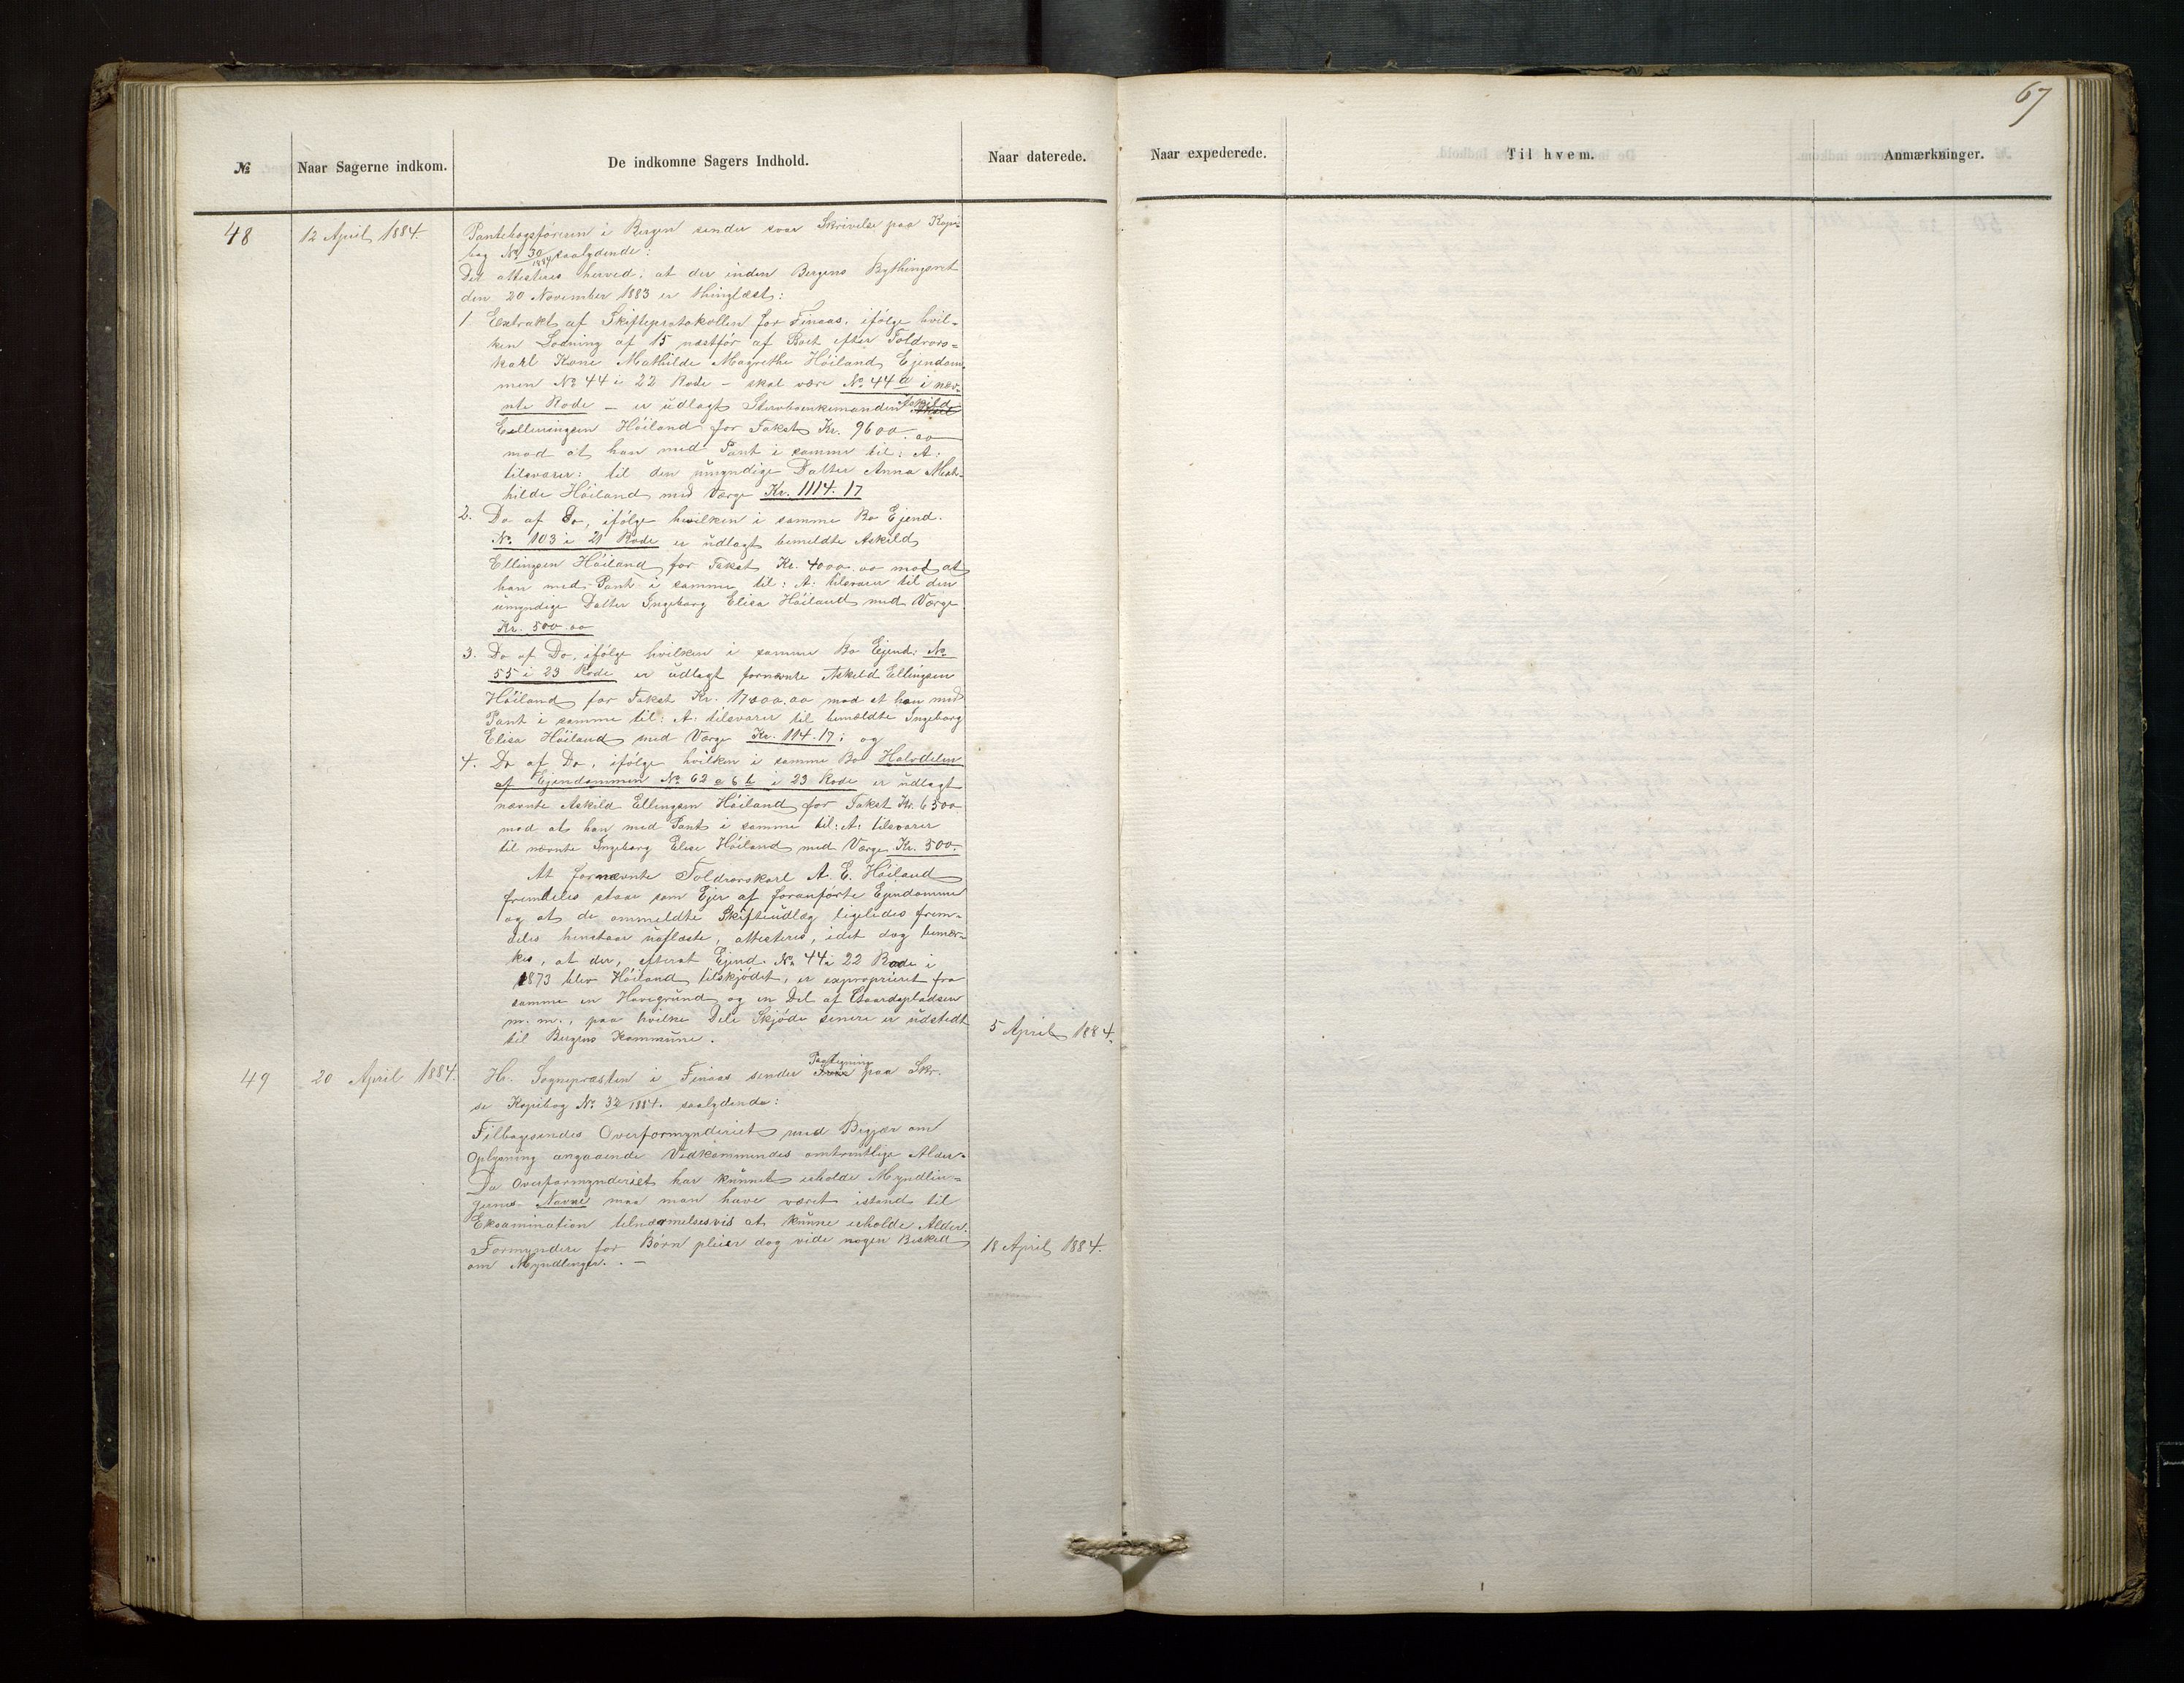 67
№ Naar Sagerne indkom. De indkomne Sagers Indhold. Naar daterede. Naar expederede. Til hvem. Anmærkninger.
48 12 April 1884. Pantebogsføreren i Bergen sender svar Skrivelse paa Kopi-
bog No 30/1884 saalydende:
Det attesteres herved, at der inden Bergens Bythingsret
den 20 November 1883 er thinglæst:
1 Extrakt af Skifteprotokollen for Finaas, ifølge hvil-
ken Lodning af 15 næstfør af Boet efter Toldrors-
karl Kone Mathilde Magrethe Höiland Ejendom-
men No 44 i 22 Rode - skal være No 44 a i næv-
nte Rode - er udlagt Stervboenkemanden Askild
Ellingsen Höiland for Takst Kr. 9600.00
mod at han med Pant i samme til: A:
tilsvarer: til den umyndige Datter Anna Mat-
hilde Höiland med Værge Kr. 1114.17
2. Do af Do, ifølge hvilken i samme Bo Ejend.
No. 103 i 21 Rode er udlagt bemeldte Askild
Ellingsen Höiland for Takst Kr. 4000.00 mod at
han med Pant i samme til: A: tilsvarer til den
umyndige Datter Ingeborg Elisa Höiland med Værge
Kr. 500.00
3. Do af Do, ifølge hvilken i samme Bo Ejend: No
55 i 23 Rode er udlagt fornævnte Askild Ellingsen
Höiland for Takst Kr. 17000.00 mod at han med
Pant i samme til: A: tilsvarer til bemældte Ingeborg
Elisa Höiland med Værge Kr. 114.17; og
4. Do af Do, ifølge hvilken i samme Bo Halvdelen
af Ejendommen No 62 a & b i 23 Rode er udlagt
nævnte Askild Ellingsen Höiland for Takst Kr. 6500
mod at han med Pant i samme til: A: tilsvarer
til nævnte Ingeborg Elise Höiland med Værge Kr. 500.
At fornævnte Toldrorskarl A. E. Höiland
fremdeles staar som Ejer af foranførte Ejendomme
og at de ommeldte Skifteudlæg ligeledes frem-
deles henstaar uaflæste, attesteres, idet dog bemær-
kes, at der, efterat Ejend. No 44 i 22 Rode i
1873 blev Höiland tilskjødet, er exproprieret fra
samme en Havegrund og en Del af Gaardspladsen
m. m., paa hvilke Dele Skjøde senere er udstedt
til Bergens Kommune. 5 April 1884.
49 20 April 1884. Hr. Sognepræsten i Finaas sender Paategning paa Skr.
se Kopibog No 32/1884. saalydende:
Tilbagesendes Overformynderiet med Begjær om
Oplysning angaaende Vedkommendes omtrentlige Alder.
Da Overformynderiet har kunnet erholde Myndlin-
gernes Navne maa man have været istand til
Eksamination tilnærmelsesvis at kunne erholde Alder.
Formyndere for Børn pleier dog vide nogen Besked
om Myndlinger. . — 18 April 1884.